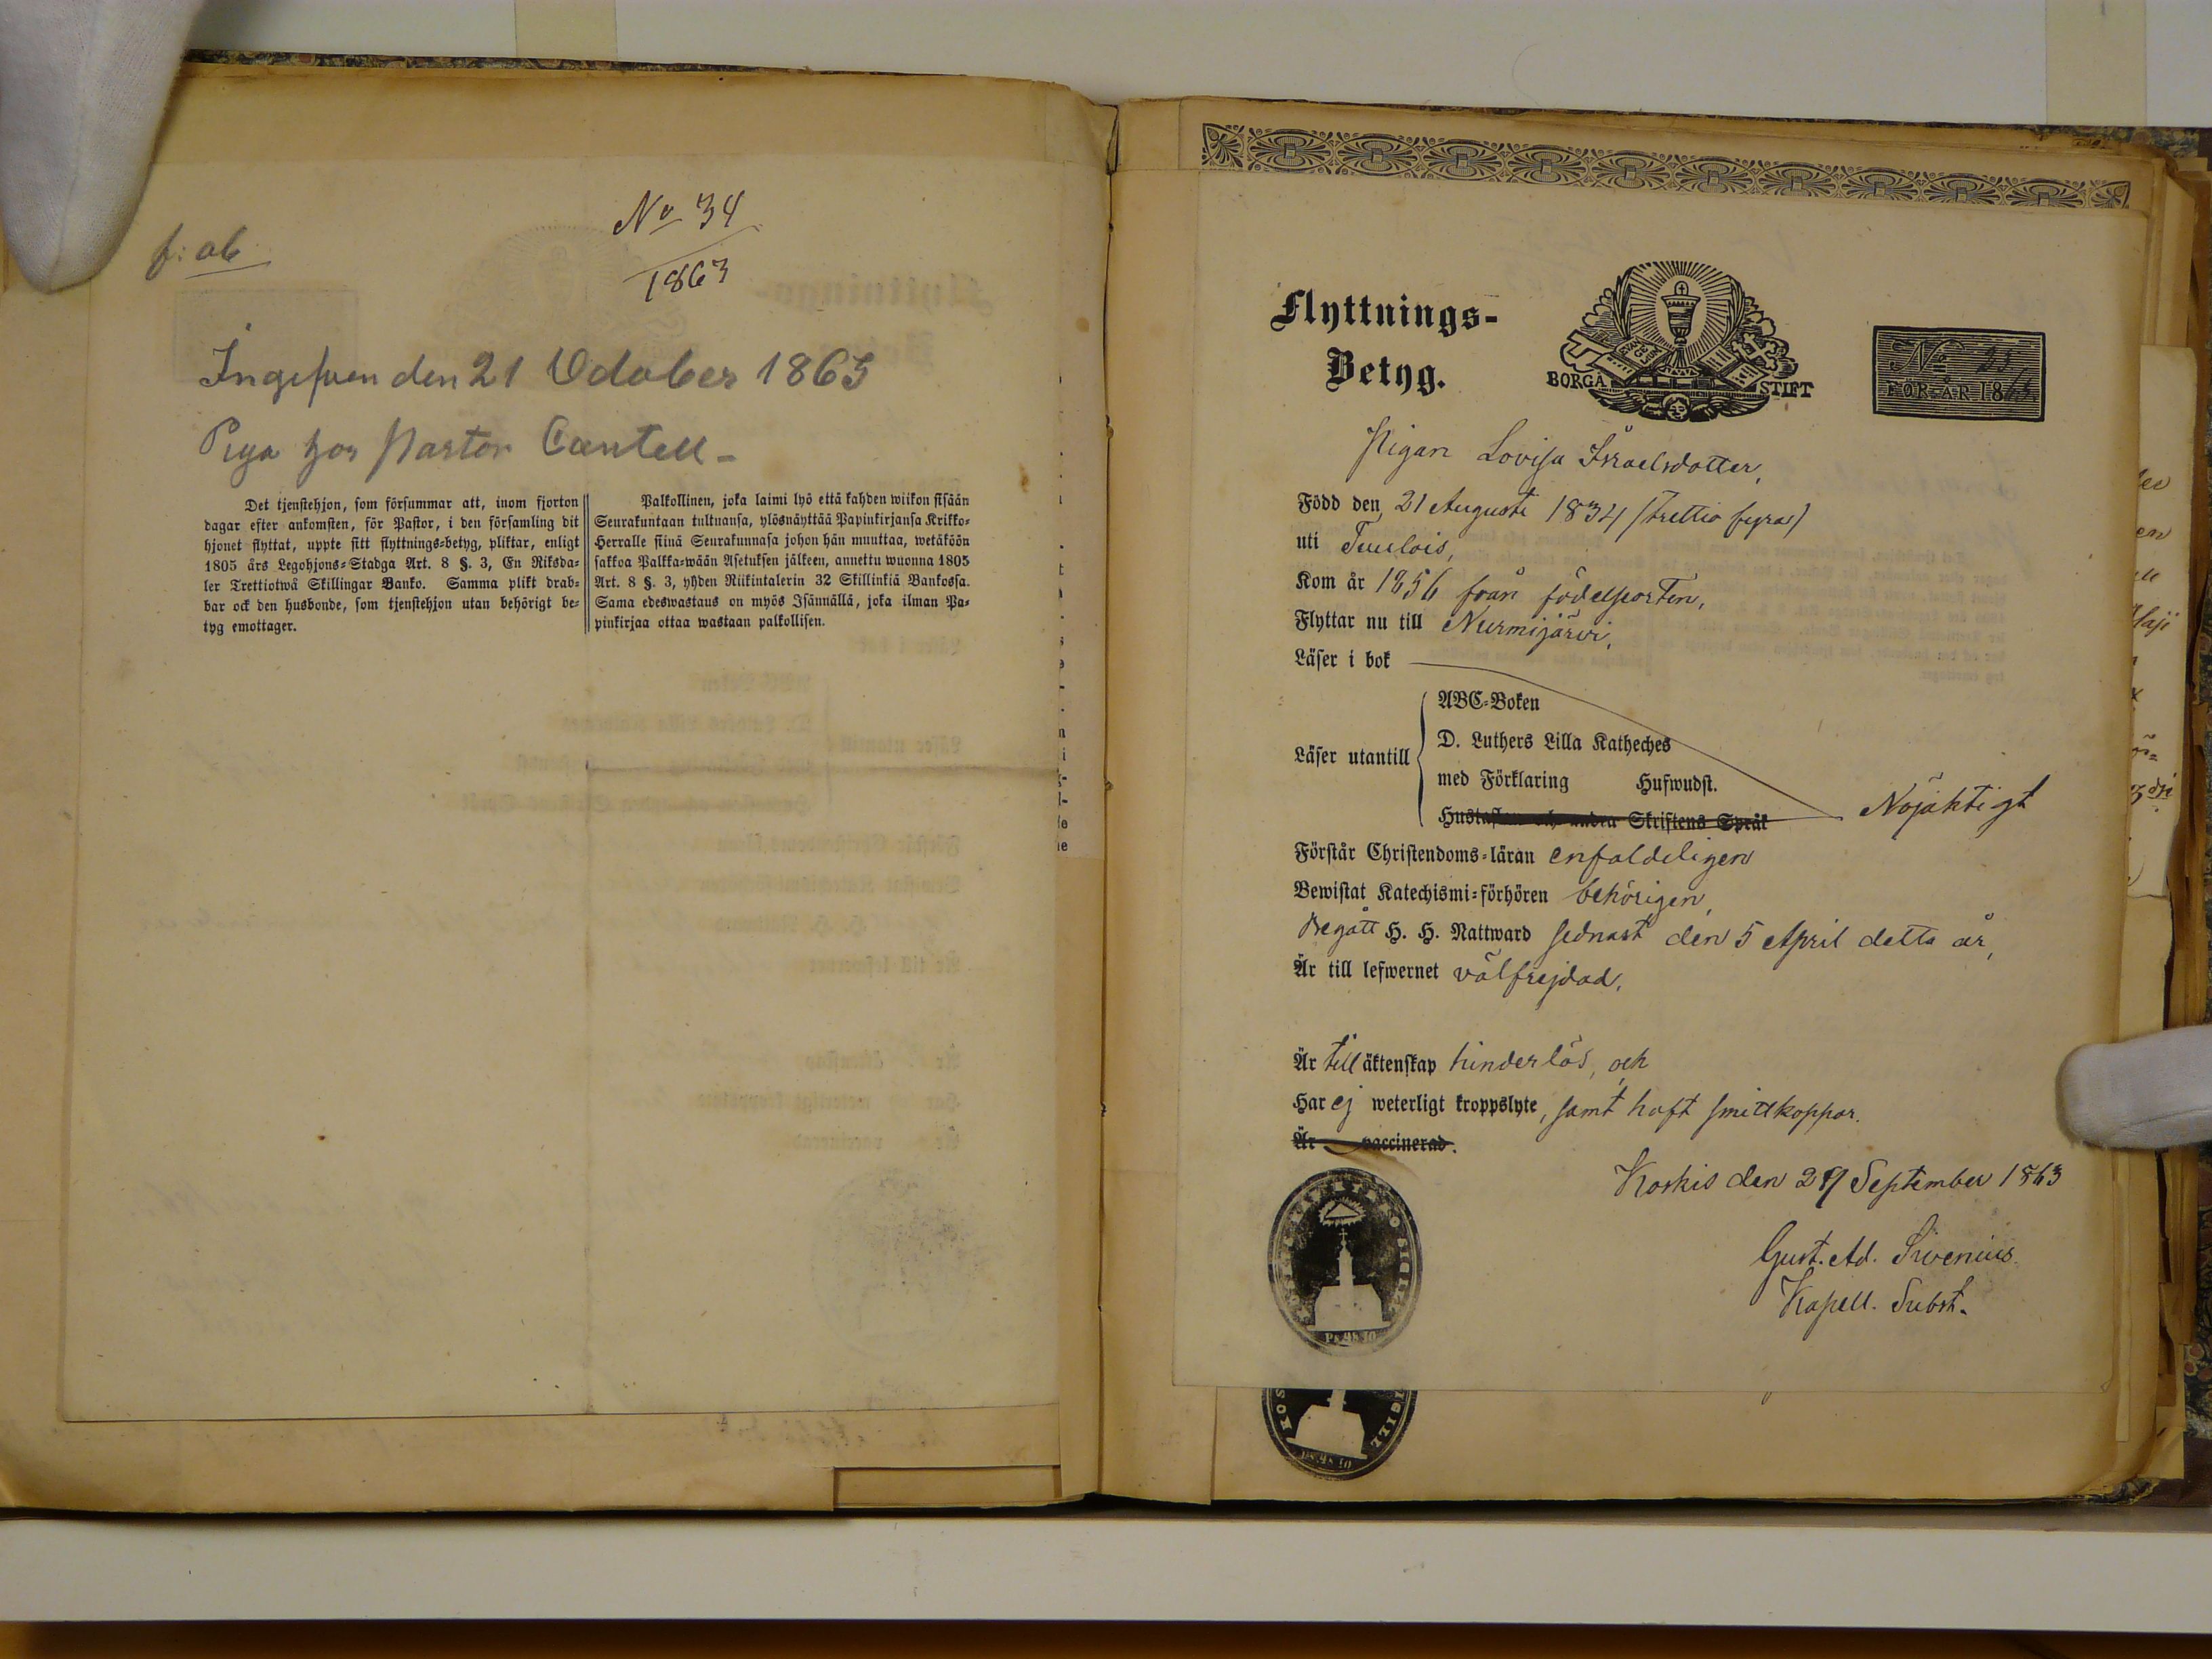 f: ab
No 34
1863
Ingifven den 21 October 1863
Piga hos Pastor Cantell -
Det tjenstehjon, som försummar att, inom fjorton
dagar efter ankomsten, för Pastor, i den församling dit
hjonet flyttat, uppte sitt flyttnings=betyg, pliktar, enligt
1805 års Legohjons=Stadga Art. 8 §. 3, En Riksda=
ler Trettiotwå Skillingar Banko. Samma plikt drab=
bar ock den husbonde, som tjenstehjon utan behörigt be=
tyg emottager.
Palkollinen, joka laimi lyö että kahden wiikon sisään
Seurakuntaan tultuansa, ylösnäyttää Papinkirjansa Krikko=
Herralle siinä Seurakunnasa johon hän muuttaa, wetäköön
sakkoa Palkka=wään Asetuksen jälkeen, annettu wuonna 1805
Art. 8 §. 3, yhden Riikintalerin 32 Skillinkiä Bankossa.
Sama edeswastaus on myös Isännällä, joka ilman Pa=
pinkirjaa ottaa wastaan palkollisen.
Flyttnings-
Betyg.
EVAN
GE
LIUM
BORGÅ STIFT
No 23
FÖR ÅR 1863
Pigan Lovisa Israelsdotter,
Född den 21 Augusti 1834 (trettio fyra)
uti Tuulois,
Kom år 1856 från födelseorten,
Flyttar nu till Nurmijärvi,
Läser i bok
ABC=Boken
Läser utantill D. Luthers Lilla Katheches
med Förklaring Hufwudst.
Hustaflan och andra Skriftens Språk
Nöjaktigt
Förstår Christendoms=läran enfaldeligen
Bewistat Katechismi=förhören behörigen,
Begått H. H. Nattward sednast den 5 April detta år,
Är till lefwernet välfrejdad,
Är till äktenskap hinderlös, och
Har ej weterligt kroppslyte, samt haft smittkoppor.
Är vaccinerad.
Koskis den 29 September 1863
Gust. Ad. Sivenius
Kapell. Subst.
SIGILL
KOS
SIGILL